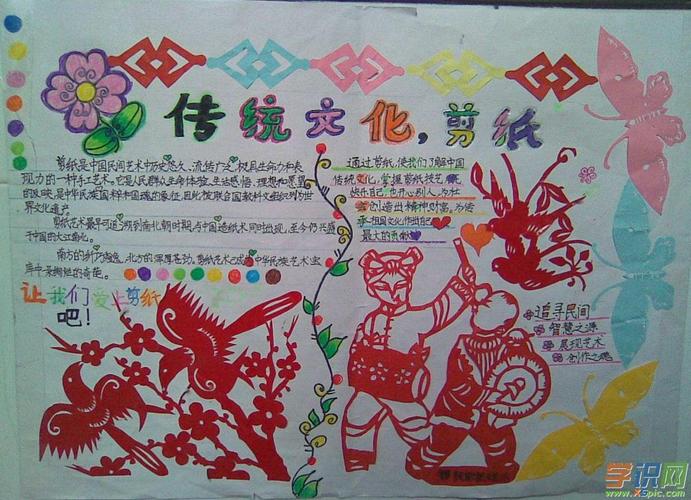 传统文化,剪纸
剪纸是中国民间艺术中历史悠久、流传广泛、极具生命力和表
现力的一种手工艺术。它是人民群众生命体验、生活感悟、理想和愿望
的反映,是中华民族国粹和国魂的象征,因此被联合国教科文组织列为世
界文化遗产。
剪纸艺术最早可追溯到南北朝时期,与中国造纸术同时出现,至今仍
于中国的大江南北。
南方的纤巧秀逸,北方的浑厚苍劲,剪纸艺术已成中华民族艺术宝
库中
让我们爱上剪纸
吧!
通过剪纸,使我们了解中国
传统文化,掌握剪纸技艺,既
快乐自己,也开心别人,为社
会创造出精神财富。为传
承祖国文化作出自己
最大的贡献
追寻民间
智慧之源
展现艺术
创作之魂
学识网
www.XSpic.com